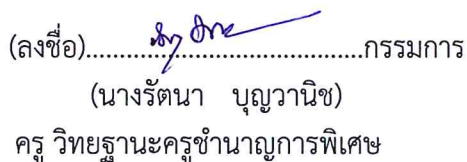 (ลงชื่อ)..........................................กรรมการ
(นางรัตนา บุญวานิช)
ครู วิทยฐานะครูชำนาญการพิเศษ